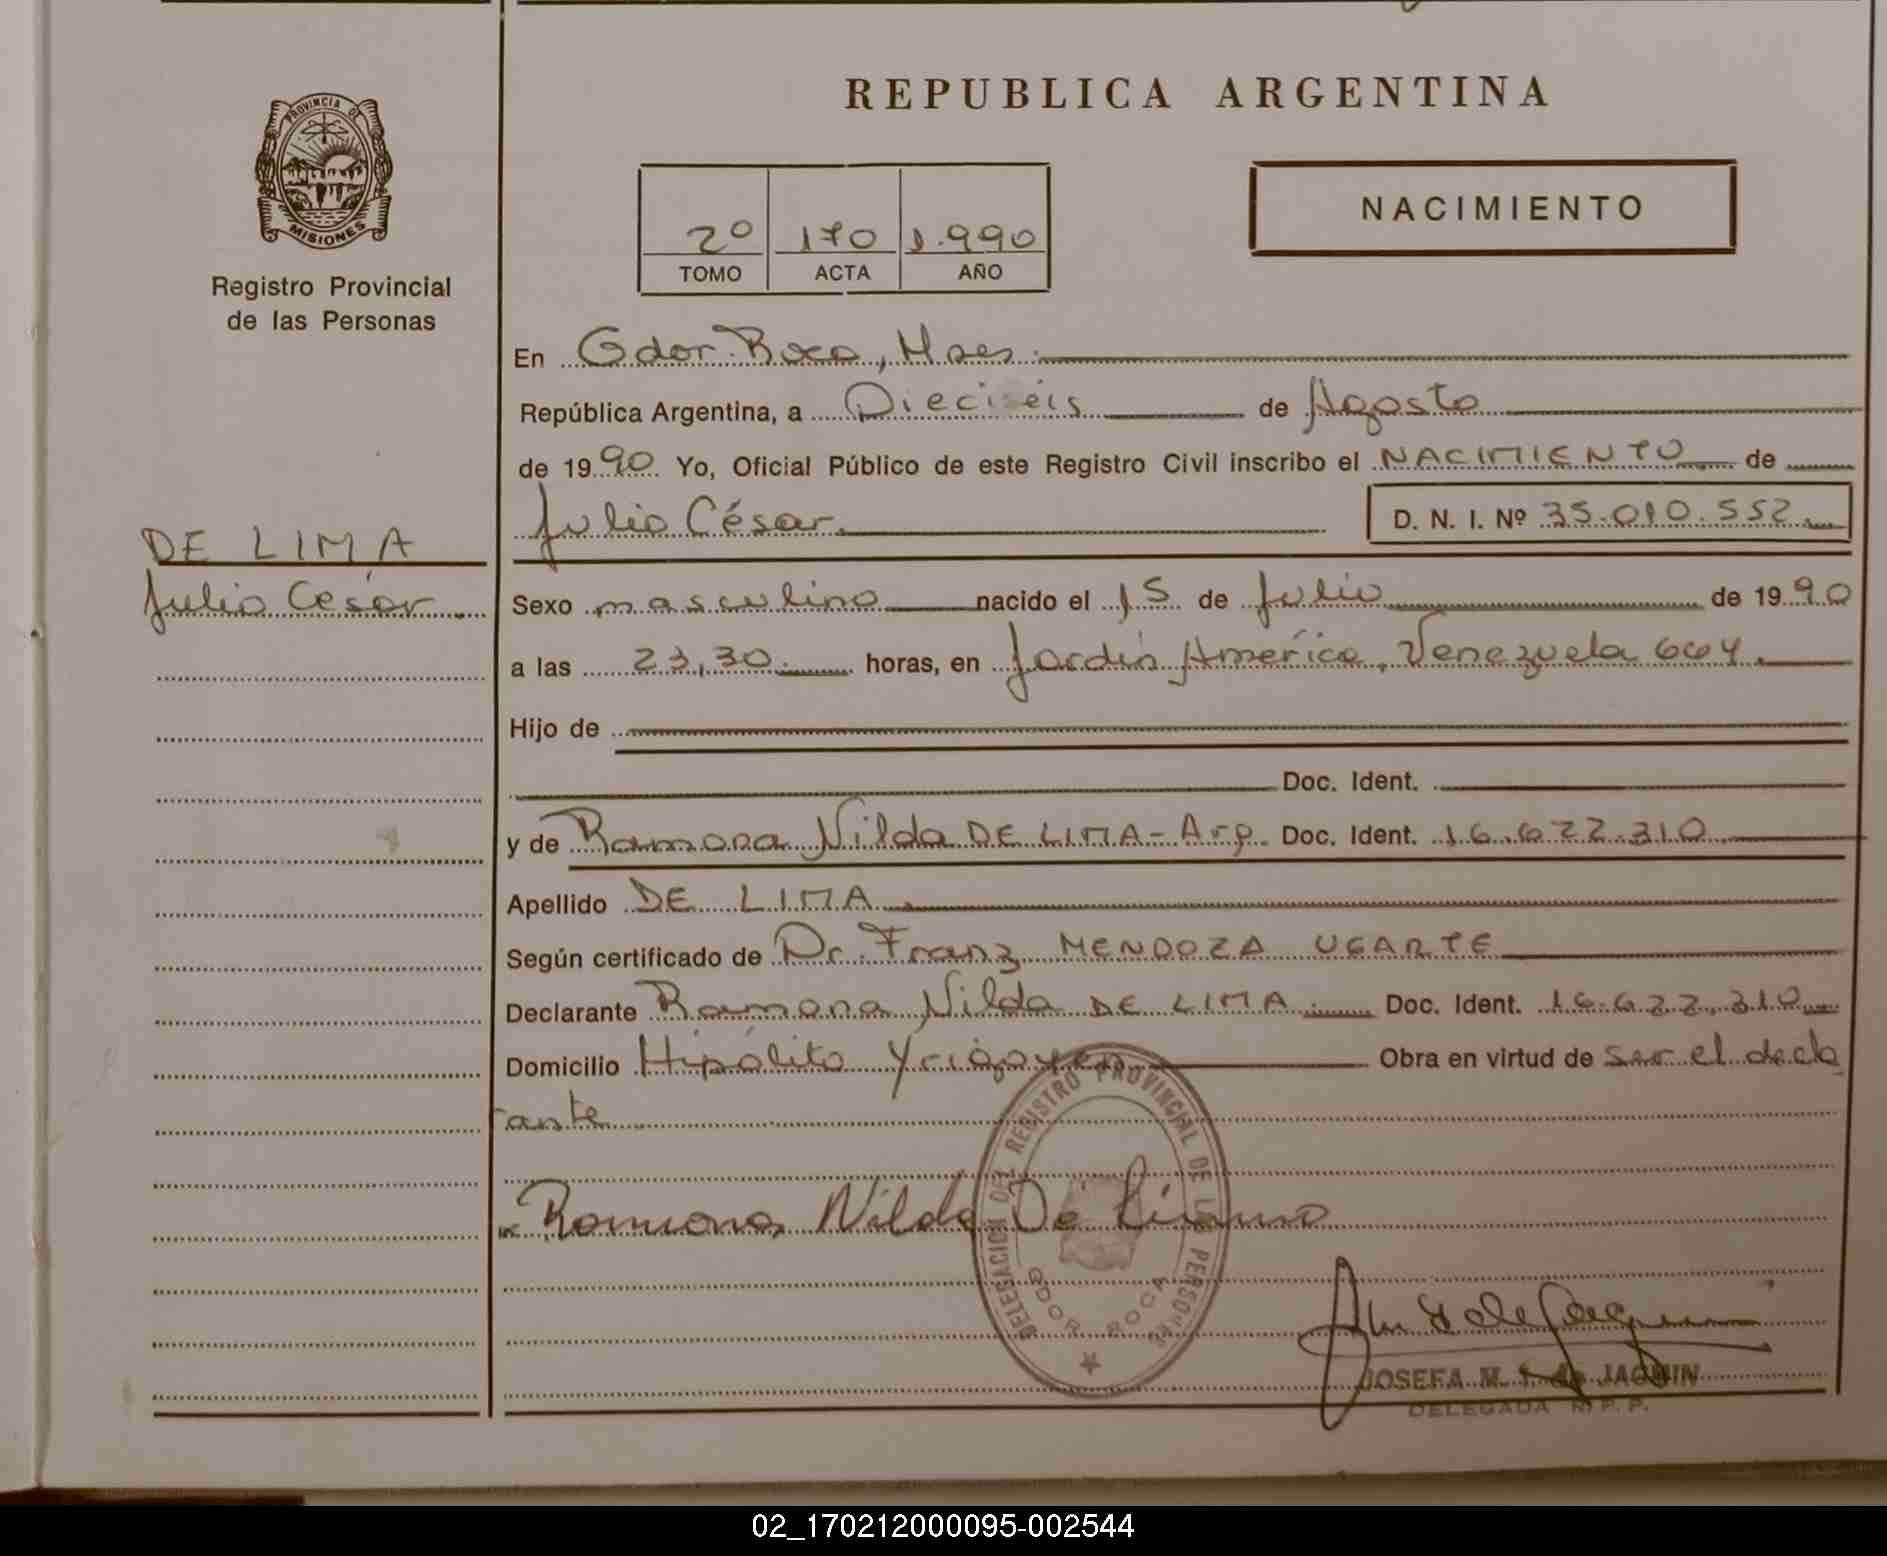 REPUBLICA ARGENTINA
PROVINCIA DE
MISIONES
Registro Provincial
de las Personas
NACIMIENTO
2º 170 1.990
TOMO ACTA AÑO
En Gdor. Roca, Mnes.
República Argentina, a Dieciséis de Agosto
de 1990 Yo, Oficial Público de este Registro Civil inscribo el NACIMIENTO de
Julio César. D. N. I. Nº 35.010.552
DE LIMA
Julio César
Sexo masculino nacido el 15 de Julio de 1990
a las 23,30 horas, en Jardín América, Venezuela 664.
Hijo de
Doc. Ident.
y de Ramona Nilda DE LIMA - Arg. Doc. Ident. 16.622.310
Apellido DE LIMA
Según certificado de Dr. Franz MENDOZA UGARTE
Declarante Ramona Nilda DE LIMA Doc. Ident. 16.622.310
Domicilio Hipólito Yrigoyen Obra en virtud de ser el decla
rante
DELEGACION DEL REGISTRO PROVINCIAL DE LAS PERSONAS
GDOR. ROCA
Ramona Nilda De Lima
JOSEFA M. de JAQUIN
DELEGADA R. P. P.
02_170212000095-002544